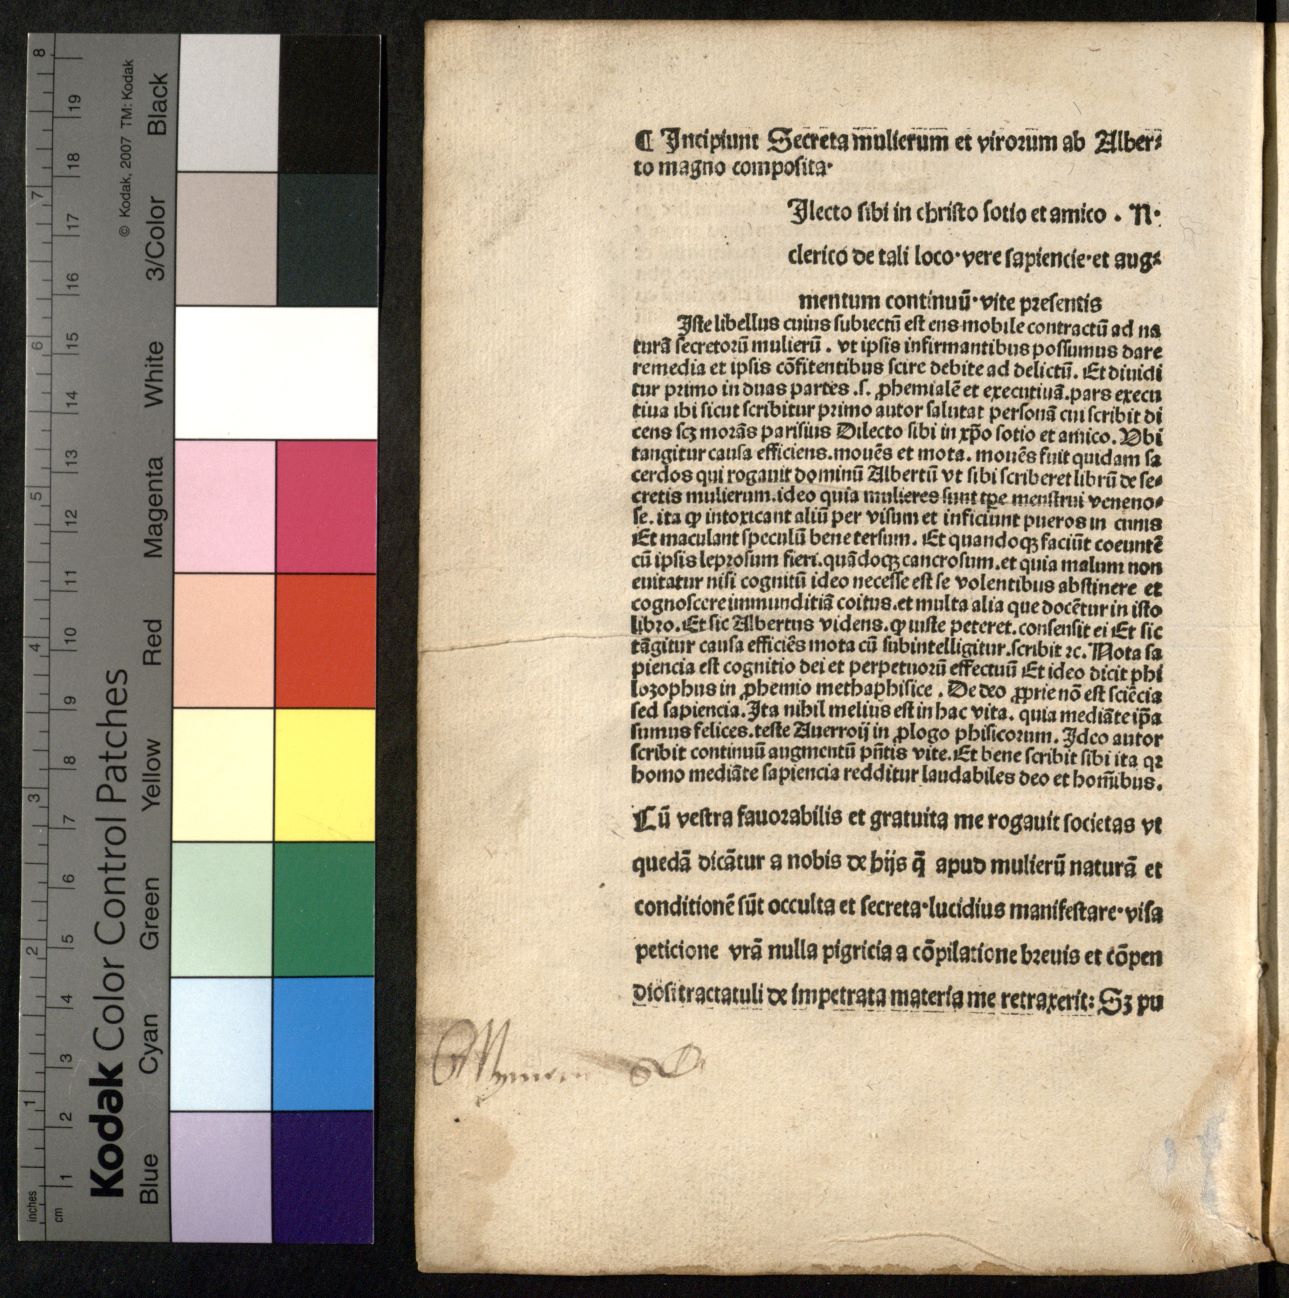 ¶ Incipiunt Secreta mulierum et virorum ab Alber⸗
to magno composita·
Ilecto sibi in christo sotio et amico . N·
clerico de tali loco·vere sapiencie·et aug⸗
mentum continuū·vite presentis
Iste libellus cuius subiectū est ens mobile contractū ad na
turā secretorū mulierū . vt ipsis infirmantibus possumus dare
remedia et ipsis cōfitentibus scire debite ad delictū. Et diuidi
tur primo in duas partes .s. ꝓhemialē et executiuā.pars execu
tiua ibi sicut scribitur primo autor salutat personā cui scribit di
cens scꝫ morās parisius Dilecto sibi in xp̄o sotio et amico. Vbi
tangitur causa efficiens.mouēs et mota. mouēs fuit quidam sa
cerdos qui rogauit dominū Albertū vt sibi scriberet librū de se⸗
cretis mulierum.ideo quia mulieres sunt tp̄e menstrui veneno⸗
se. ita ꝙ intoxicant aliū per visum et inficiunt pueros in cunis
Et maculant speculū bene tersum. Et quandoqꝫ faciūt coeuntē
cū ipsis leprosum fieri.quādoqꝫ cancrosum.et quia malum non
euitatur nisi cognitū ideo necesse est se volentibus abstinere et
cognoscere immunditiā coitus.et multa alia que docētur in isto
libro. Et sic Albertus videns.ꝙ iuste peteret.consensit ei Et sic
tāgitur causa efficiēs mota cū subintelligitur.scribit ⁊c. Nota sa
piencia est cognitio dei et perpetuorū effectuū Et ideo dicit phi
lozophus in ꝓhemio methaphisice . De deo ꝓprie nō est sciēcia
sed sapiencia. Ita nihil melius est in hac vita. quia mediāte ip̄a
sumus felices.teste Auerroij in ꝓlogo phisicorum. Ideo autor
scribit continuū augmentū pn̄tis vite. Et bene scribit sibi ita qꝛ
homo mediāte sapiencia redditur laudabiles deo et hom̄ibus.
Cū vestra fauorabilis et gratuita me rogauit societas vt
quedā dicātur a nobis de hijs q̄ apud mulierū naturā et
conditionē sūt occulta et secreta·lucidius manifestare·visa
peticione vr̄a nulla pigricia a cōpilatione breuis et cōpen
diosi tractatuli de impetrata materia me retraxerit: Sꝫ pu
Kodak Color Control Patches
© Kodak, 2007 TM: Kodak
Blue Cyan Green Yellow Red Magenta White 3/Color Black
inches 1 2 3 4 5 6 7 8
cm 1 2 3 4 5 6 7 8 9 10 11 12 13 14 15 16 17 18 19